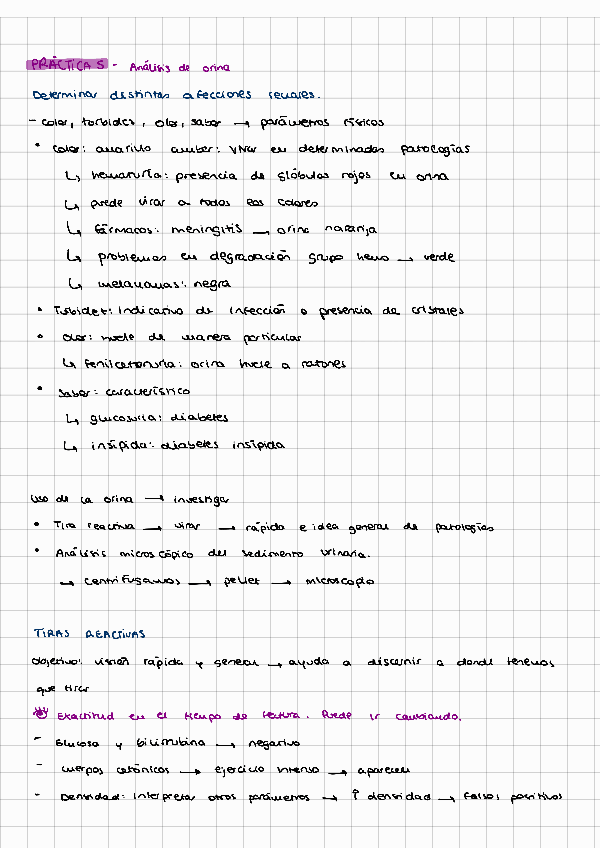 PRÁCTICA 5 - Análisis de orina
Determinar distintas afecciones renales.
- color, turbidez, olor, sabor → parámetros físicos
• Color: amarillo ambar: virar en determinadas patologías
↳ hematuria: presencia de glóbulos rojos en orina
↳ puede virar a todos los colores
↳ fármacos: meningitis → orina naranja
↳ problemas en degradación grupo hemo → verde
↳ melanomas: negra
• Turbidez: Indicativo de infección o presencia de cristales
• Olor: huele de manera particular
↳ fenilcetonuria: orina huele a ratones
• Sabor: característico
↳ glucosuria: diabetes
↳ insípida: diabetes insípida
Uso de la orina → investiga
• Tira reactiva → virar → rápido e idea general de patologías
• Análisis microscópico del sedimento urinario.
→ centrifugamos → pellet → microscopio
TIRAS REACTIVAS
Objetivo: visión rápida y general → ayuda a discernir a donde tenemos
que tirar
Exactitud en el tiempo de lectura. Puede ir cambiando.
- Glucosa y bilirrubina → negativo
- Cuerpos cetónicos → ejercicio intenso → aparecen
- Densidad: interpretar otros parámetros → ↑ densidad → falsos positivos